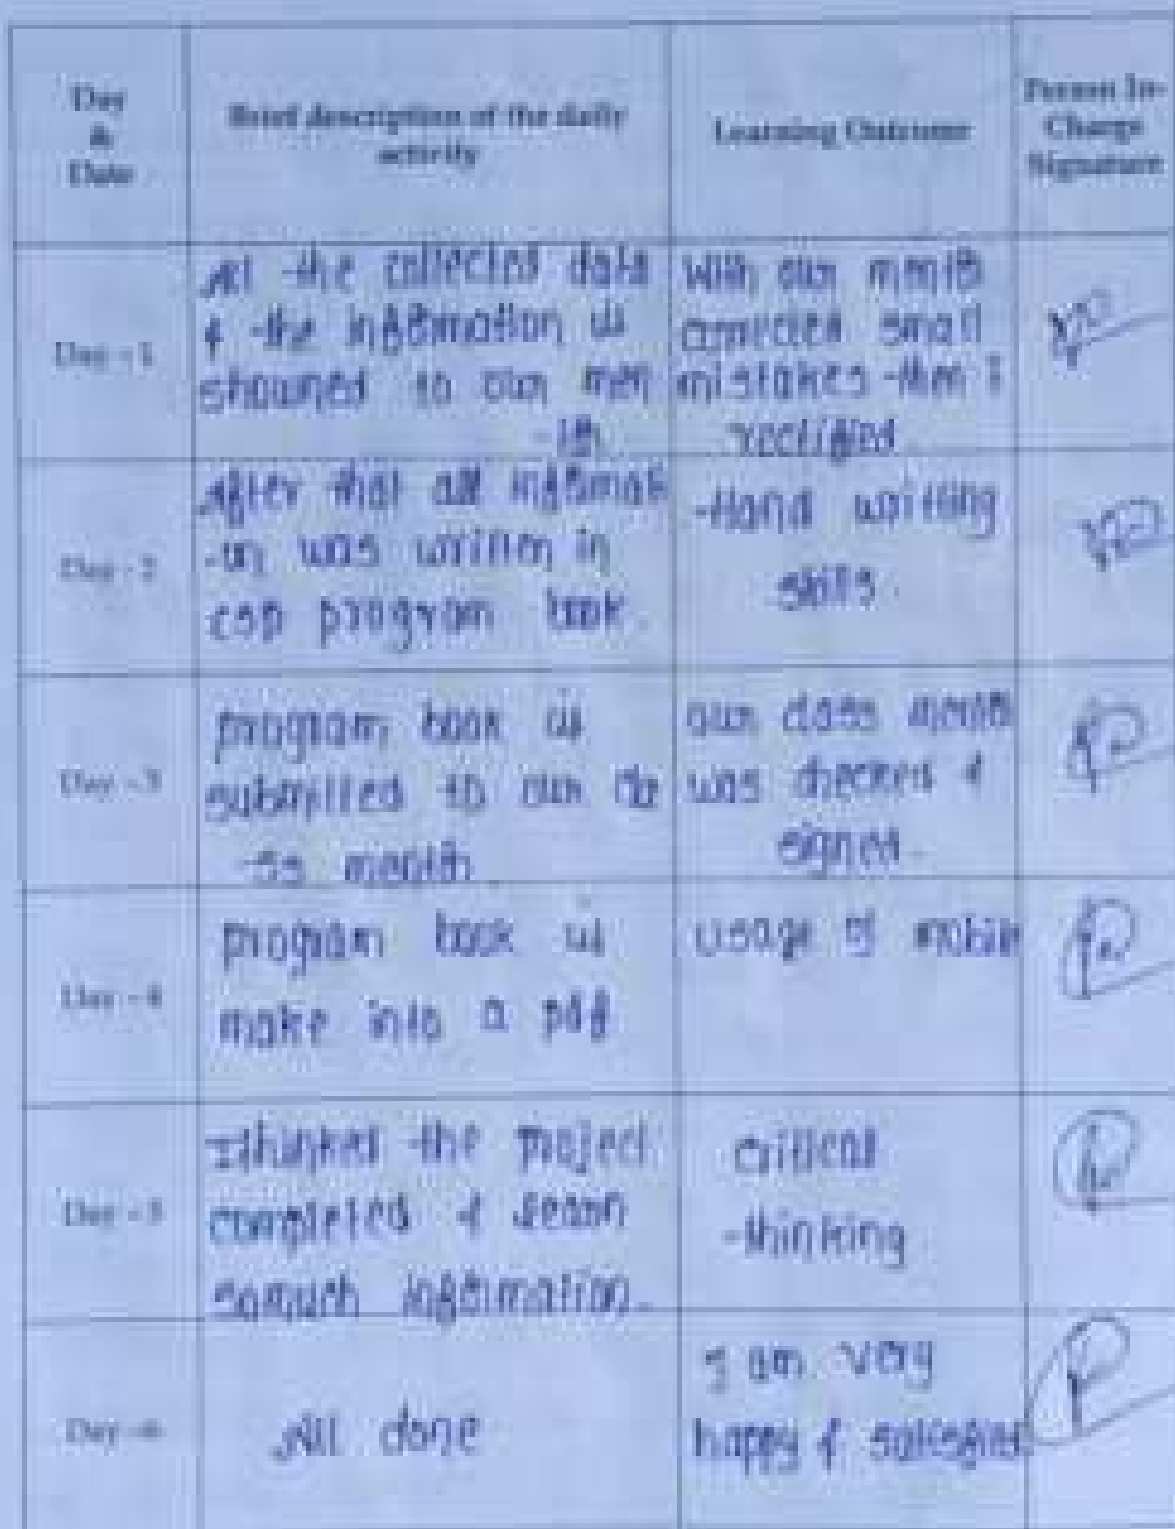 Day
&
Date
Brief description of the daily
activity
Learning Outcome
Person In-
Charge
Signature
Day - 1
All the collected data
& the information is
showned to our men
-ter
With our mentor
corrected small
mistakes then I
rectified.
Day - 2
After that all informati
-on was written in
csp program book.
Hand writting
skills.
Day - 3
program book is
submitted to our cla
-ss
our class
was checked &
signed.
Day - 4
program book is
make into a pdf
usage of mobile
Day - 5
the project
completed &
somuch information.
critical
thinking.
Day - 6
All done
I am very
happy & satisfied